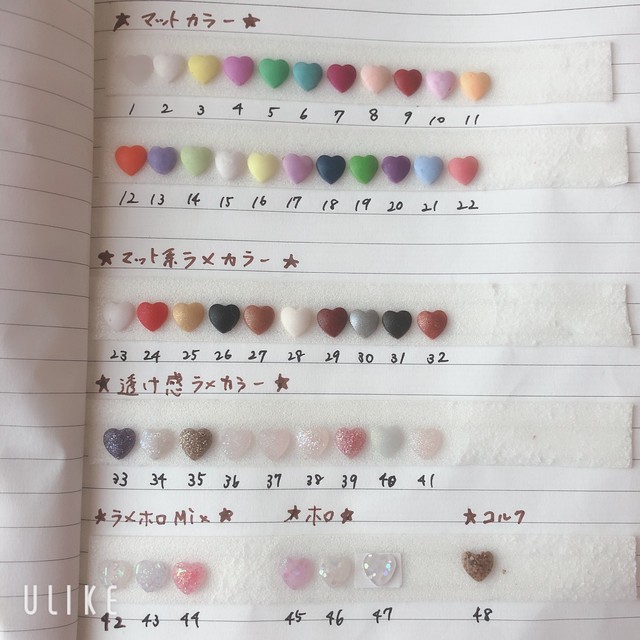 ★ マットカラー ★
1 2 3 4 5 6 7 8 9 10 11
12 13 14 15 16 17 18 19 20 21 22
★ マット系ラメカラー ★
23 24 25 26 27 28 29 30 31 32
★ 透け感ラメカラー ★
33 34 35 36 37 38 39 40 41
★ラメホロMix ★ ★ホロ★ ★コルク
42 43 44 45 46 47 48
ULIKE